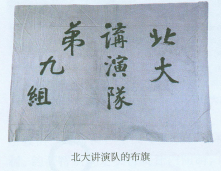 北大
講演隊
第九組
北大讲演队的布旗